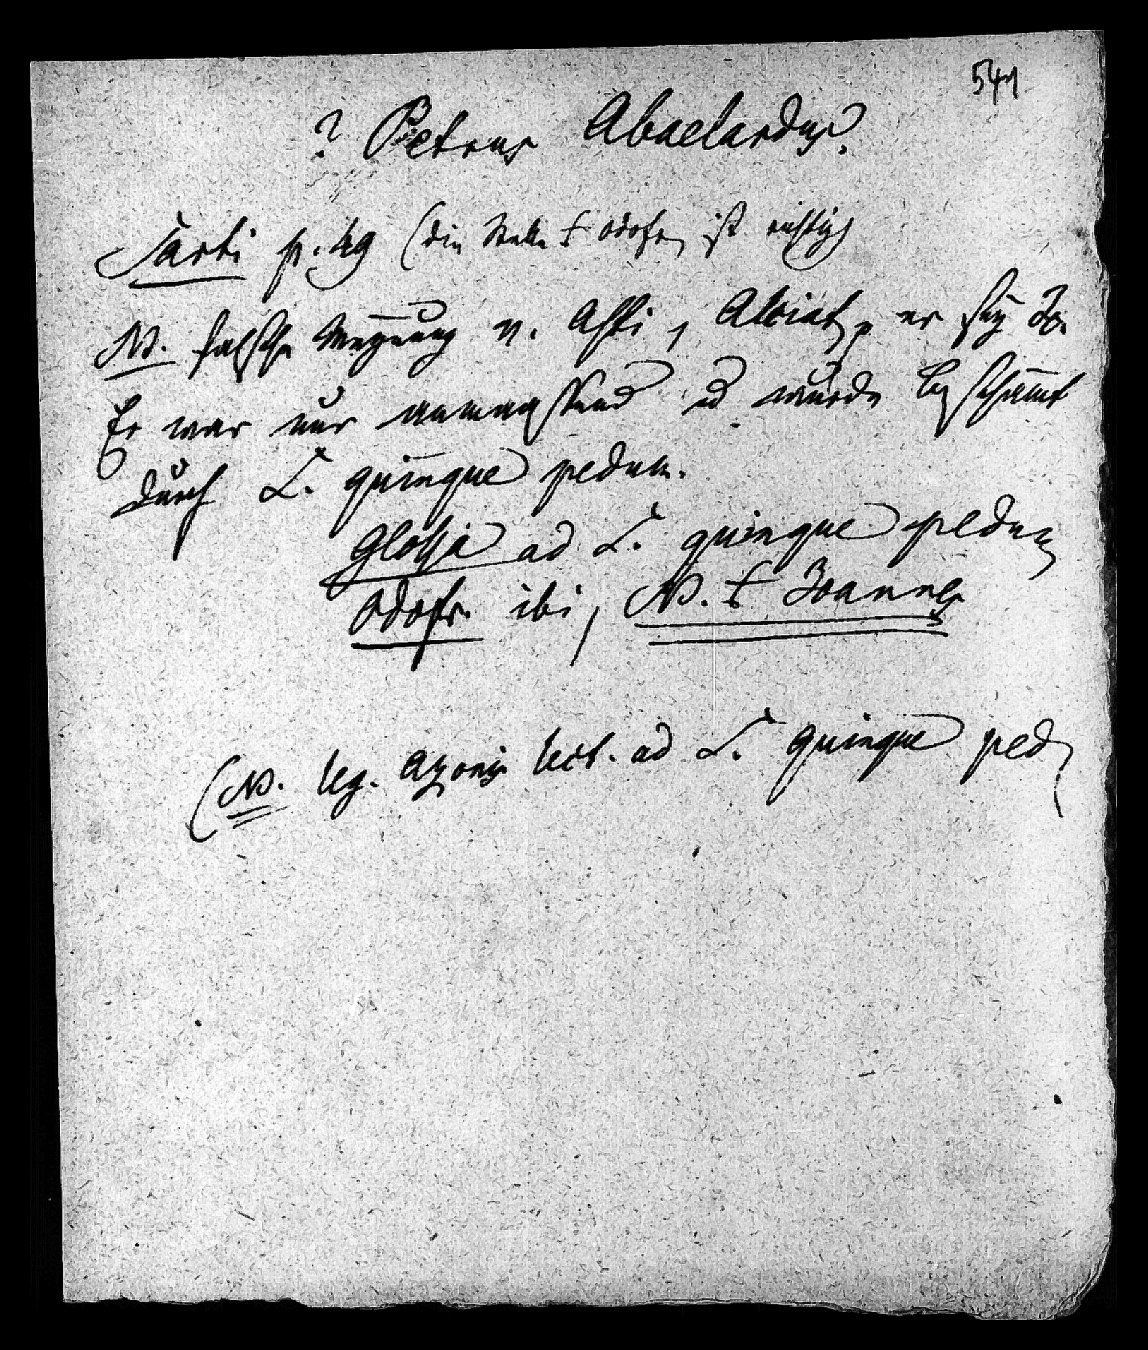 541
? Petrus Abaelardus?
Sarti p. 49 (die Stelle t Odofr. ist richtig)
NB. falsche Meynung v. Asti, Alciat, er sey Jo.
Er war nur anmassend u wurde beschämt
durch L. quinque pedum.
Glossa ad L. quinque pedum
Odofr. ibi, NB. t Joannes
(NB. leg. Azonis lect. ad L. quinque ped.